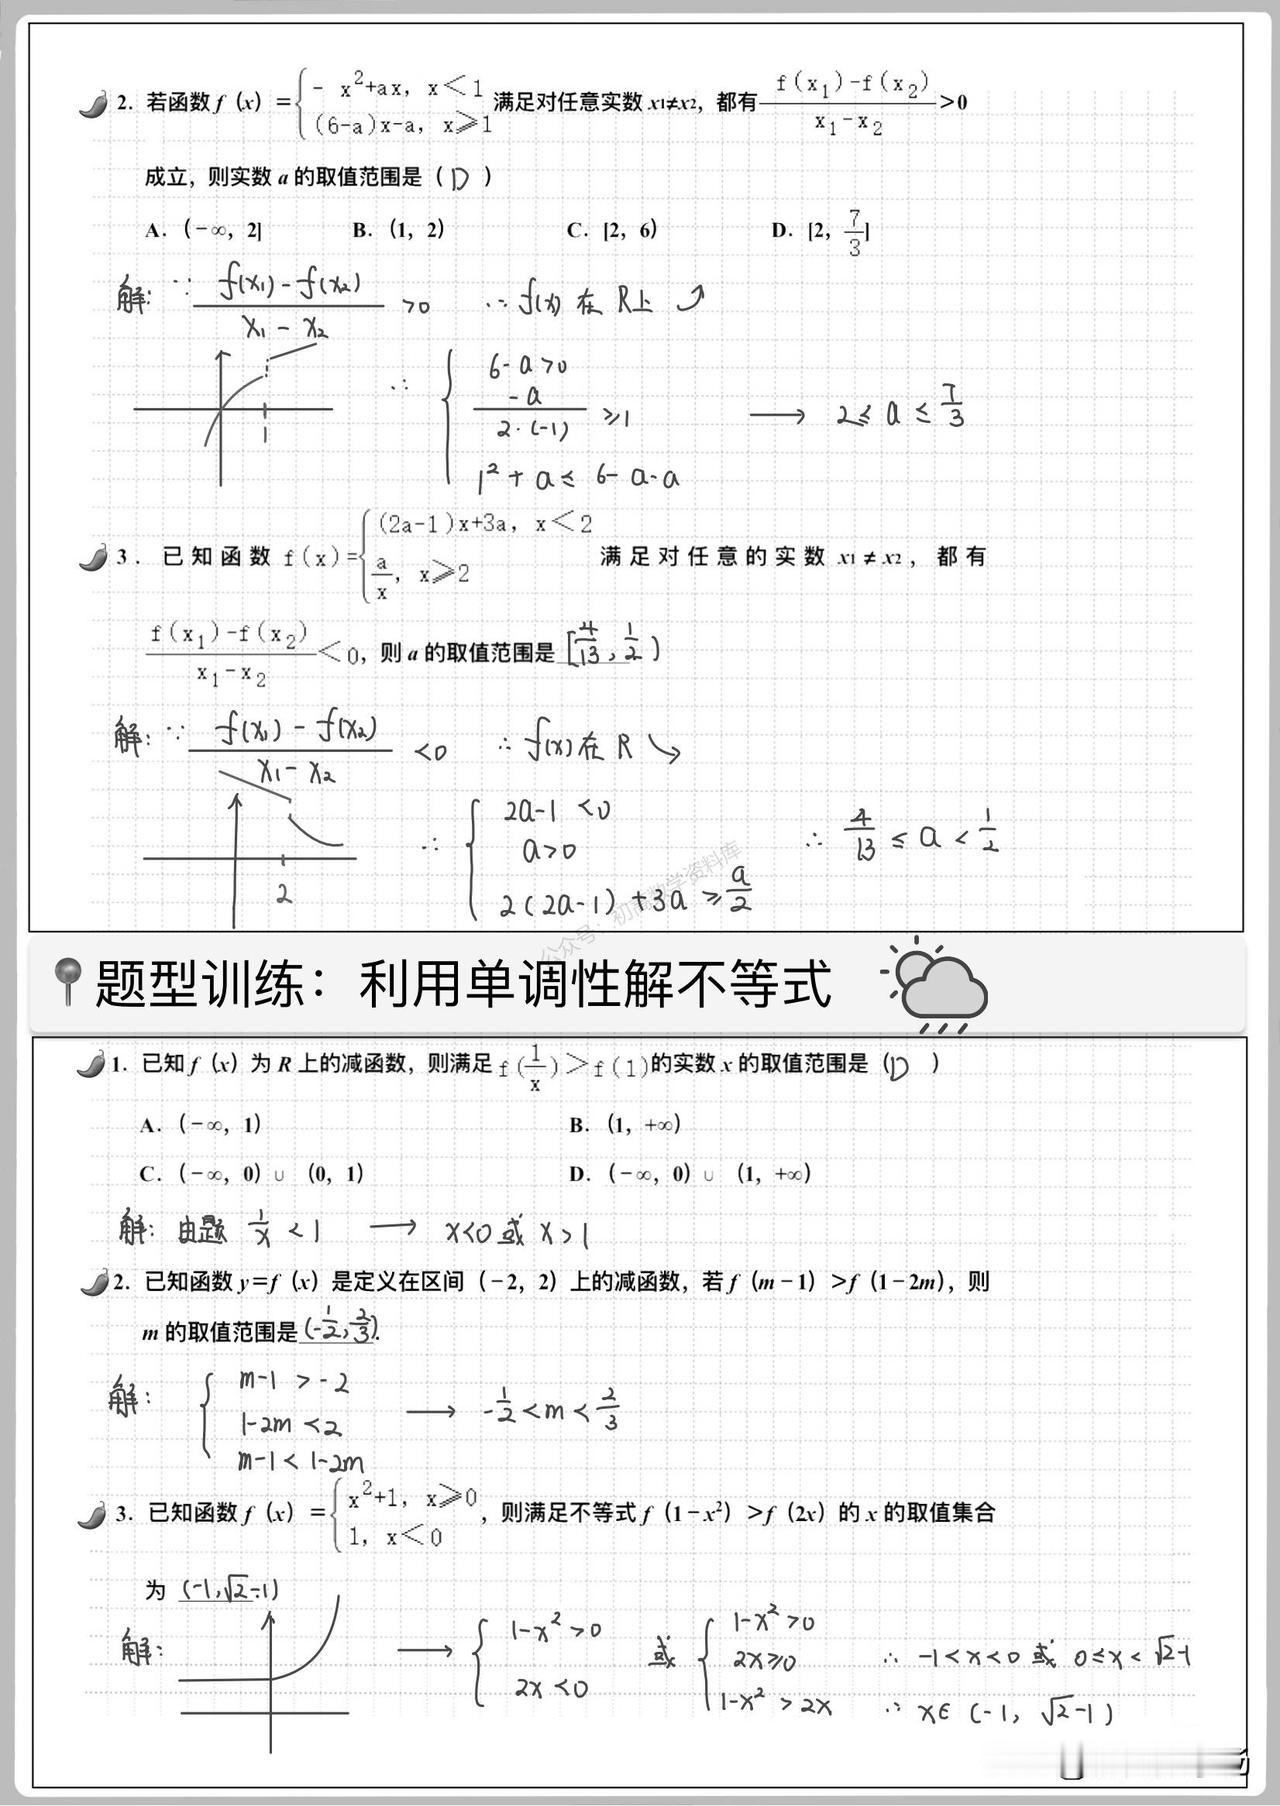 2. 若函数 f（x）={ - x²+ax, x<1 ; (6-a)x-a, x≥1 满足对任意实数 x₁≠x₂，都有 (f(x₁)-f(x₂))/(x₁-x₂) >0
成立，则实数 a 的取值范围是（ D ）
A.（-∞，2] B.（1，2） C. [2，6） D. [2，7/3]
解: ∵ (f(x₁)-f(x₂))/(x₁-x₂) >0 ∴ f(x) 在 R上 ↗
1
∴ { 6-a>0 ; -a/(2·(-1)) ≥1 ; 1²+a≤ 6-a-a → 2≤ a ≤ 7/3
3. 已知函数 f(x)={ (2a-1)x+3a, x<2 ; a/x, x≥2 满足对任意的实数 x₁≠x₂，都有
(f(x₁)-f(x₂))/(x₁-x₂) <0，则 a 的取值范围是 [4/13, 1/2)
解: ∵ (f(x₁)-f(x₂))/(x₁-x₂) <0 ∴ f(x) 在 R ↘
2
∴ { 2a-1 <0 ; a>0 ; 2(2a-1)+3a ≥ a/2 ∴ 4/13 ≤ a < 1/2
公众号：初高数学资料库
题型训练：利用单调性解不等式
1. 已知 f（x）为 R 上的减函数，则满足 f(1/x)>f(1)的实数 x 的取值范围是（ D ）
A.（-∞，1） B.（1，+∞）
C.（-∞，0）∪（0，1） D.（-∞，0）∪（1，+∞）
解: 由题 1/x <1 → x<0 或 x>1
2. 已知函数 y=f（x）是定义在区间（-2，2）上的减函数，若 f（m-1）>f（1-2m），则
m 的取值范围是 (-1/2, 2/3).
解: { m-1 >-2 ; 1-2m <2 ; m-1< 1-2m → -1/2 <m< 2/3
3. 已知函数 f（x）={ x²+1, x≥0 ; 1, x<0 ，则满足不等式 f（1-x²）>f（2x）的 x 的取值集合
为 (-1,√2-1)
解: → { 1-x²>0 ; 2x<0 或 { 1-x²>0 ; 2x≥0 ; 1-x²>2x ∴ -1<x<0 或 0≤x<√2-1
∴ x∈ (-1, √2-1)